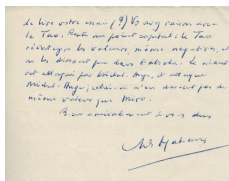 de lire votre essai (?) Vs avez raison avec
le Tao. Reste un point capital : le Tao
réintègre les valeurs, même négatives, et
ne les dissout pas dans l'absolu. Le néant
est attaqué par Michel-Ange, et attaque
Michel-Ange ; celui-ci n'en devient pas de
même valeur que Miro.
Bien amicalement à vous deux